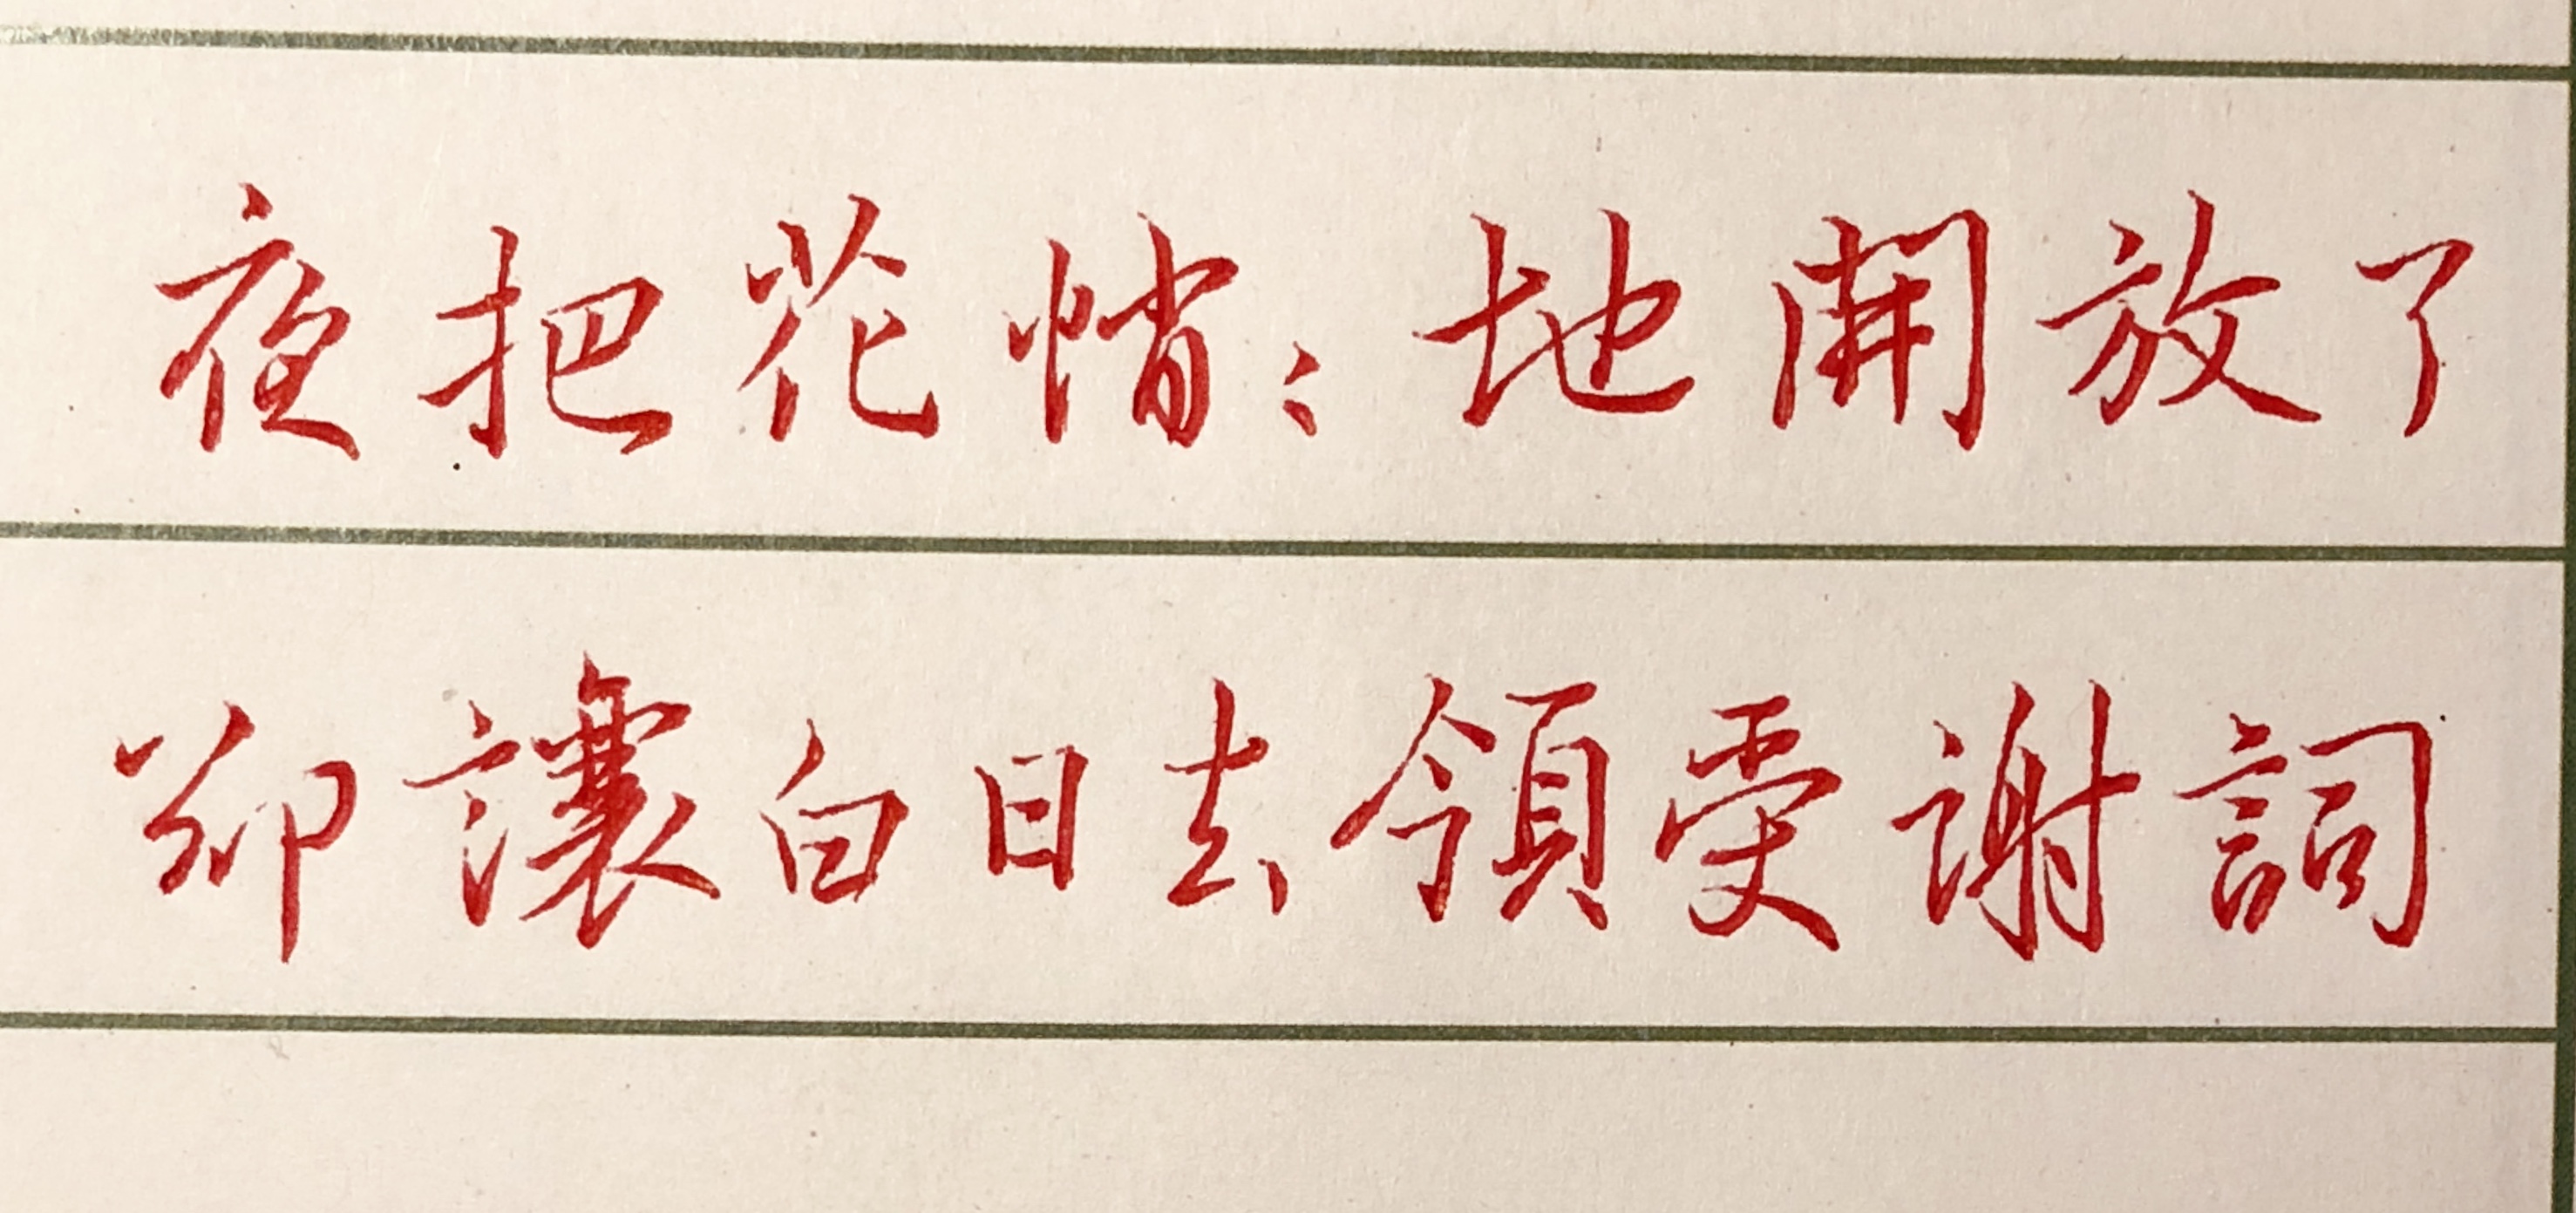 夜把花悄〻地開放了
卻讓白日去領受謝詞